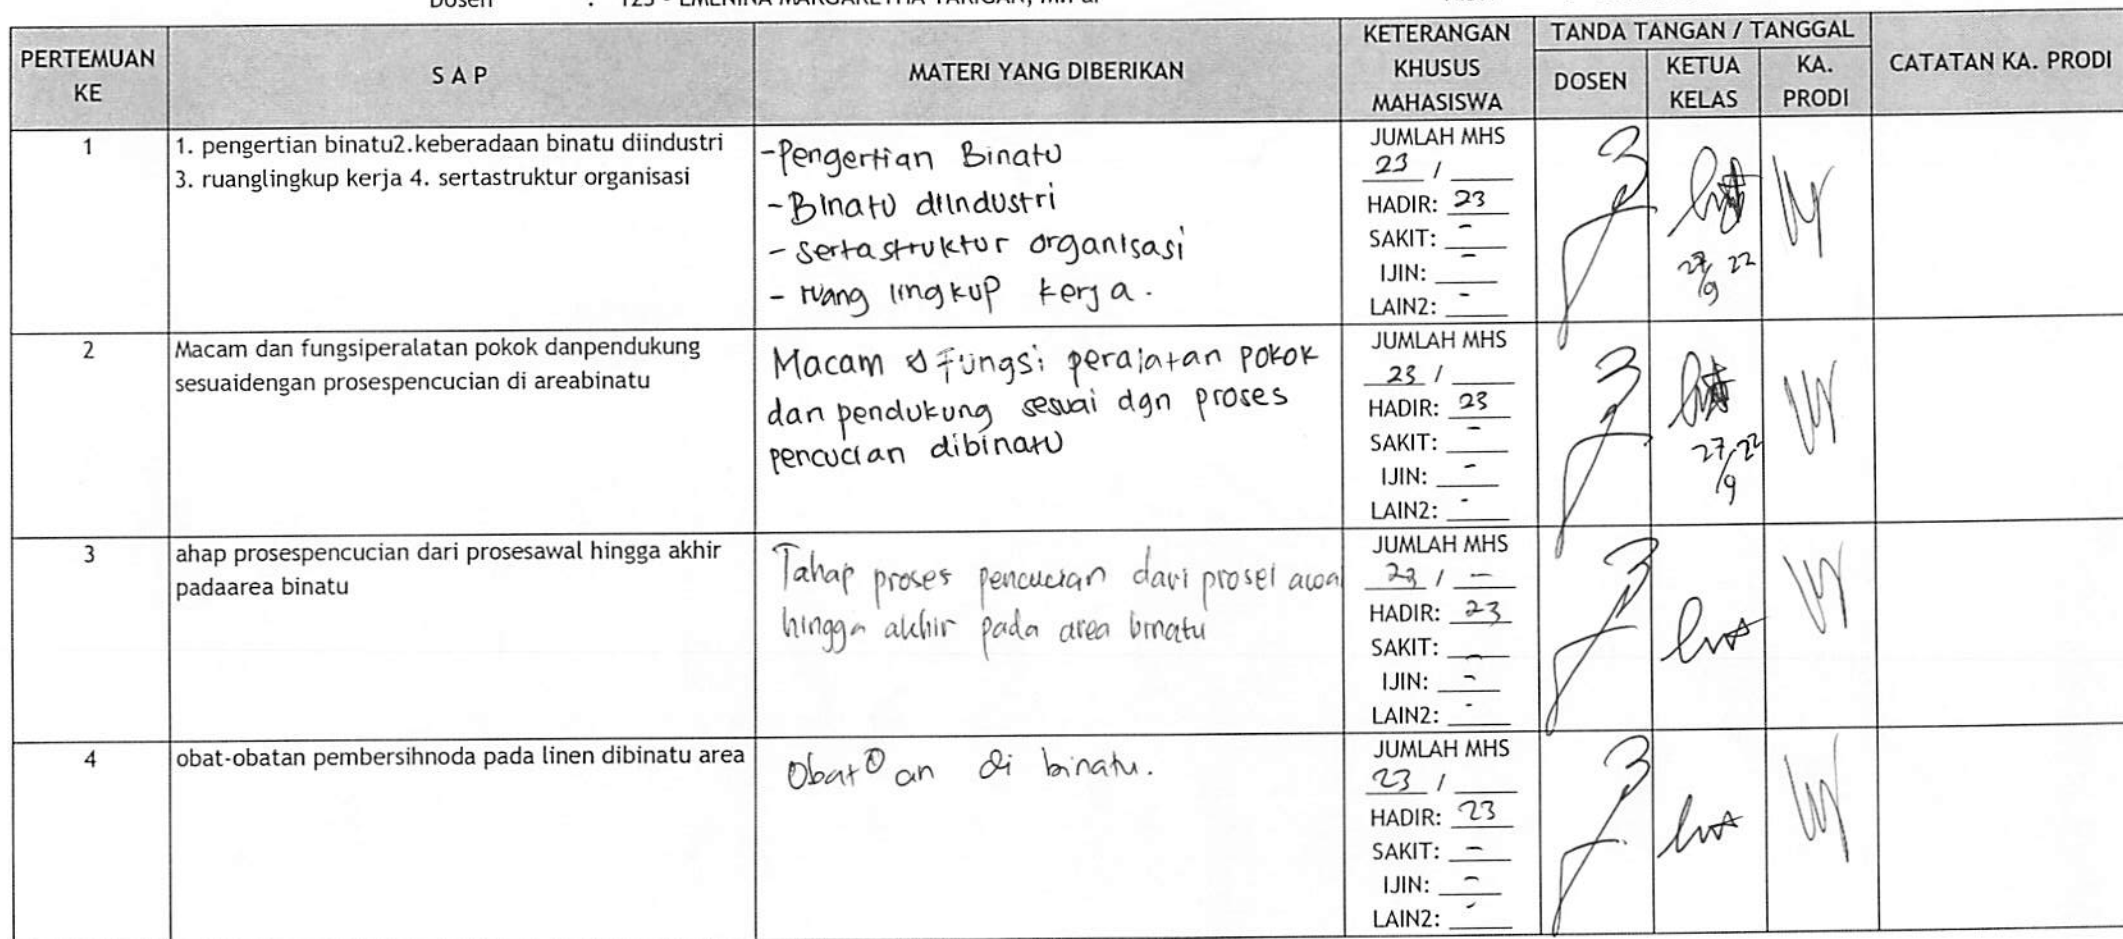 Dosen : 123 - EMENINA MARGARETHA TARIGAN,
PERTEMUAN KE
S A P
MATERI YANG DIBERIKAN
KETERANGAN KHUSUS MAHASISWA
TANDA TANGAN / TANGGAL
DOSEN
KETUA KELAS
KA. PRODI
CATATAN KA. PRODI
1
1. pengertian binatu2.keberadaan binatu diindustri
3. ruanglingkup kerja 4. sertastruktur organisasi
-Pengertian Binatu
-Binatu diindustri
- sertastruktur organisasi
- ruang lingkup kerja.
JUMLAH MHS
23 / ____
HADIR: 23
SAKIT: -
IJIN: -
LAIN2: -
27/9 22
2
Macam dan fungsiperalatan pokok danpendukung
sesuaidengan prosespencucian di areabinatu
Macam & Fungsi peralatan pokok
dan pendukung sesuai dgn proses
pencucian dibinatu
JUMLAH MHS
23 / ____
HADIR: 23
SAKIT: -
IJIN: -
LAIN2: -
27/9 22
3
ahap prosespencucian dari prosesawal hingga akhir
padaarea binatu
Tahap proses pencucian dari proses awal
hingga akhir pada area binatu
JUMLAH MHS
23 / -
HADIR: 23
SAKIT: -
IJIN: -
LAIN2: -
4
obat-obatan pembersihnoda pada linen dibinatu area
Obat² an di binatu.
JUMLAH MHS
23 / ____
HADIR: 23
SAKIT: -
IJIN: -
LAIN2: -